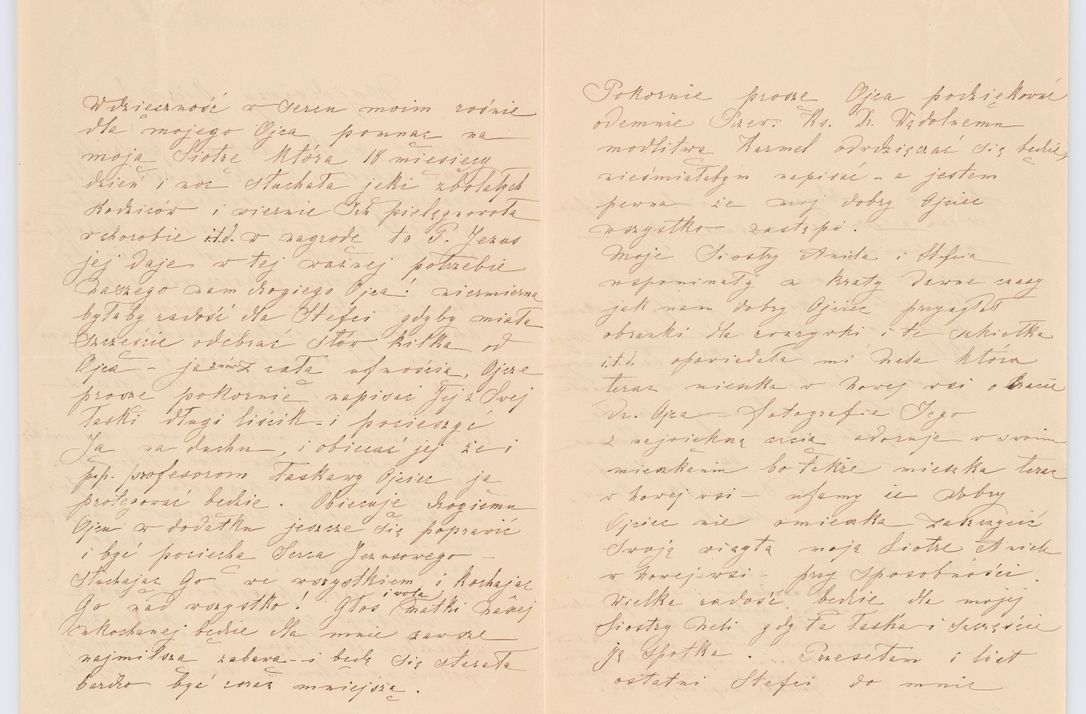 Wdzięczność w sercu moim rośnie
dla mojego Ojca pomnąc na
moją Siotrę która 18 miesięcy
dzień i noc słuchała jęki zbolałych
Rodziców i wiernie Ich pielęgnowała
w chorobie itd. w nagrodę to P. Jezus
jej daje w tej ważnej potrzebie
naszego nam drogiego Ojca! niezmierna
byłaby radość dla Stefci gdyby miała
szczęście odebrać słów kilka od
Ojca – ja znów z całą ufnością, Ojcze
proszę pokornie napisać Jej z Swej
łaski długi liścik – i pocieszyć
Ją na duchu, i obiecać jej że i
p.p. profesorom łaskawy Ojciec ją
protegować będzie. Obiecuję drogiemu
Ojcu w dodatku jeszcze się poprawić
i być pociechą Serca Jezusowego –
słuchając Go we wszystkiem i kochając
Go nad wszystko! Głos i wola Matki naszej
ukochanej będzie dla mnie zawsze
najmilszą zabawą – i będę się starała
bardzo być coraz mniejszą.
Pokornie proszę Ojca podziękować
odemnie Przew. Ks. Dr. Wądolnemu
modlitwą Karmel odwdzięczać się będzie,
nieśmiałabym napisać – a jestem
pewna że mój dobry Ojciec
wszystko zastąpi.
Moje Siostry Aniela i Stefcia
wspominały u kraty dawne czasy
jak nam dobry Ojciec przysyłał
obrazki dla rozrywki i te sukiełka
i.t.d. opowiedziała mi Nela która
teraz mieszka w Nowej wsi o bracie
Dr. Ojca – fotografię Jego
z największą czcią adoruje w swoim
mieszkaniu bo także mieszka teraz
w Nowej wsi – ufamy że Dobry
Ojciec nie omieszka zaszczycić
Swoją wizytą moją Siotrę Anielę
w Nowej-wsi – przy sposobności.
Wielka radość będzie dla mojej
Siostry Neli gdy ta łaska i szczęście
Ją spotka. Przesełam i list
ostatni Stefci do mnie